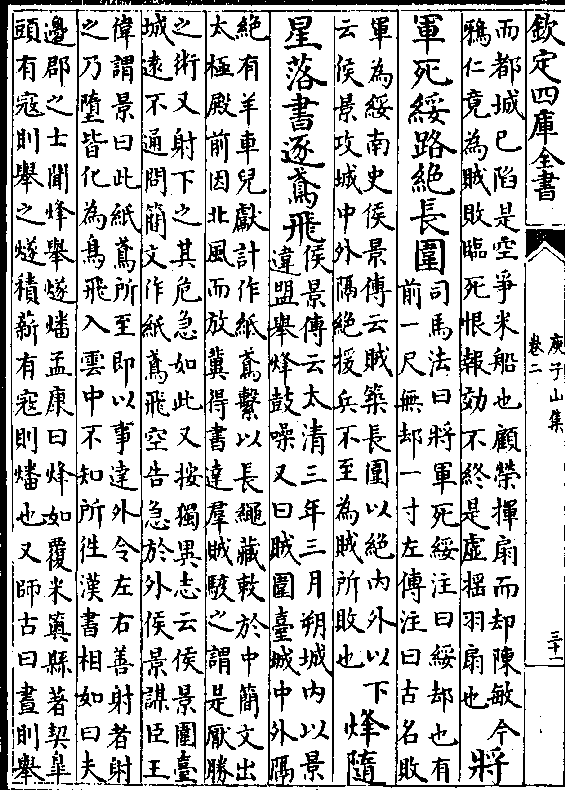 欽定四庫全書
庾子山集
卷二
三十一
而都城已陷是空爭米船也顧榮揮扇而却陳敏今
鴉仁竟為賊敗臨死恨報効不終是虛揺羽扇也
將
軍死綏路絶長圍
司馬法曰將軍死綏注曰綏却也有
前一尺無却一寸左傳注曰古名敗
軍為綏南史侯景傳云賊築長圍以絶内外以下
云侯景攻城中外隔絶援兵不至為賊所敗也
烽隨
星落書逐鳶飛
侯景傳云太清三年三月朔城内以景
違盟舉烽鼓噪又曰賊圍臺城中外隔
絶有羊車兒獻計作紙鳶繫以長繩藏敕於中簡文出
太極殿前因北風而放冀得書達羣賊駭之謂是厭勝
之術又射下之其危急如此又按獨異志云侯景圍臺
城逺不通問簡文作紙鳶飛空告急於外侯景謀臣王
偉謂景曰此紙鳶所至即以事達外令左右善射者射
之乃墮皆化為鳥飛入雲中不知所徃漢書相如曰夫
邊郡之士聞烽舉燧燔孟康曰烽如覆米䉛縣著契臯
頭有寇則舉之燧積薪有寇則燔也又師古曰晝則舉